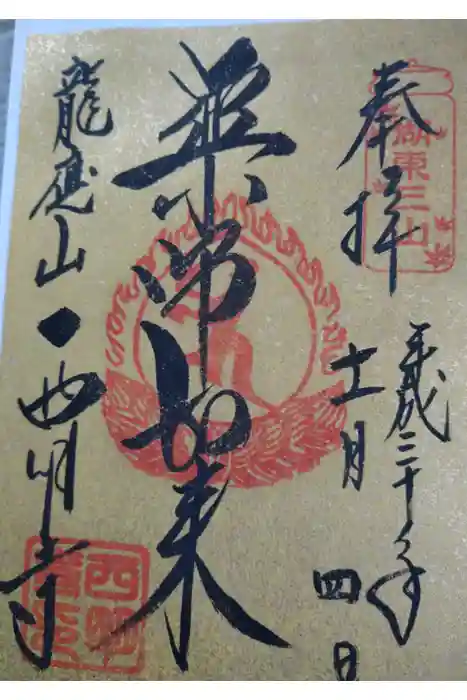 奉拝
湖東三山
平成三十年
十一月四日
薬師如来
龍應山西明寺